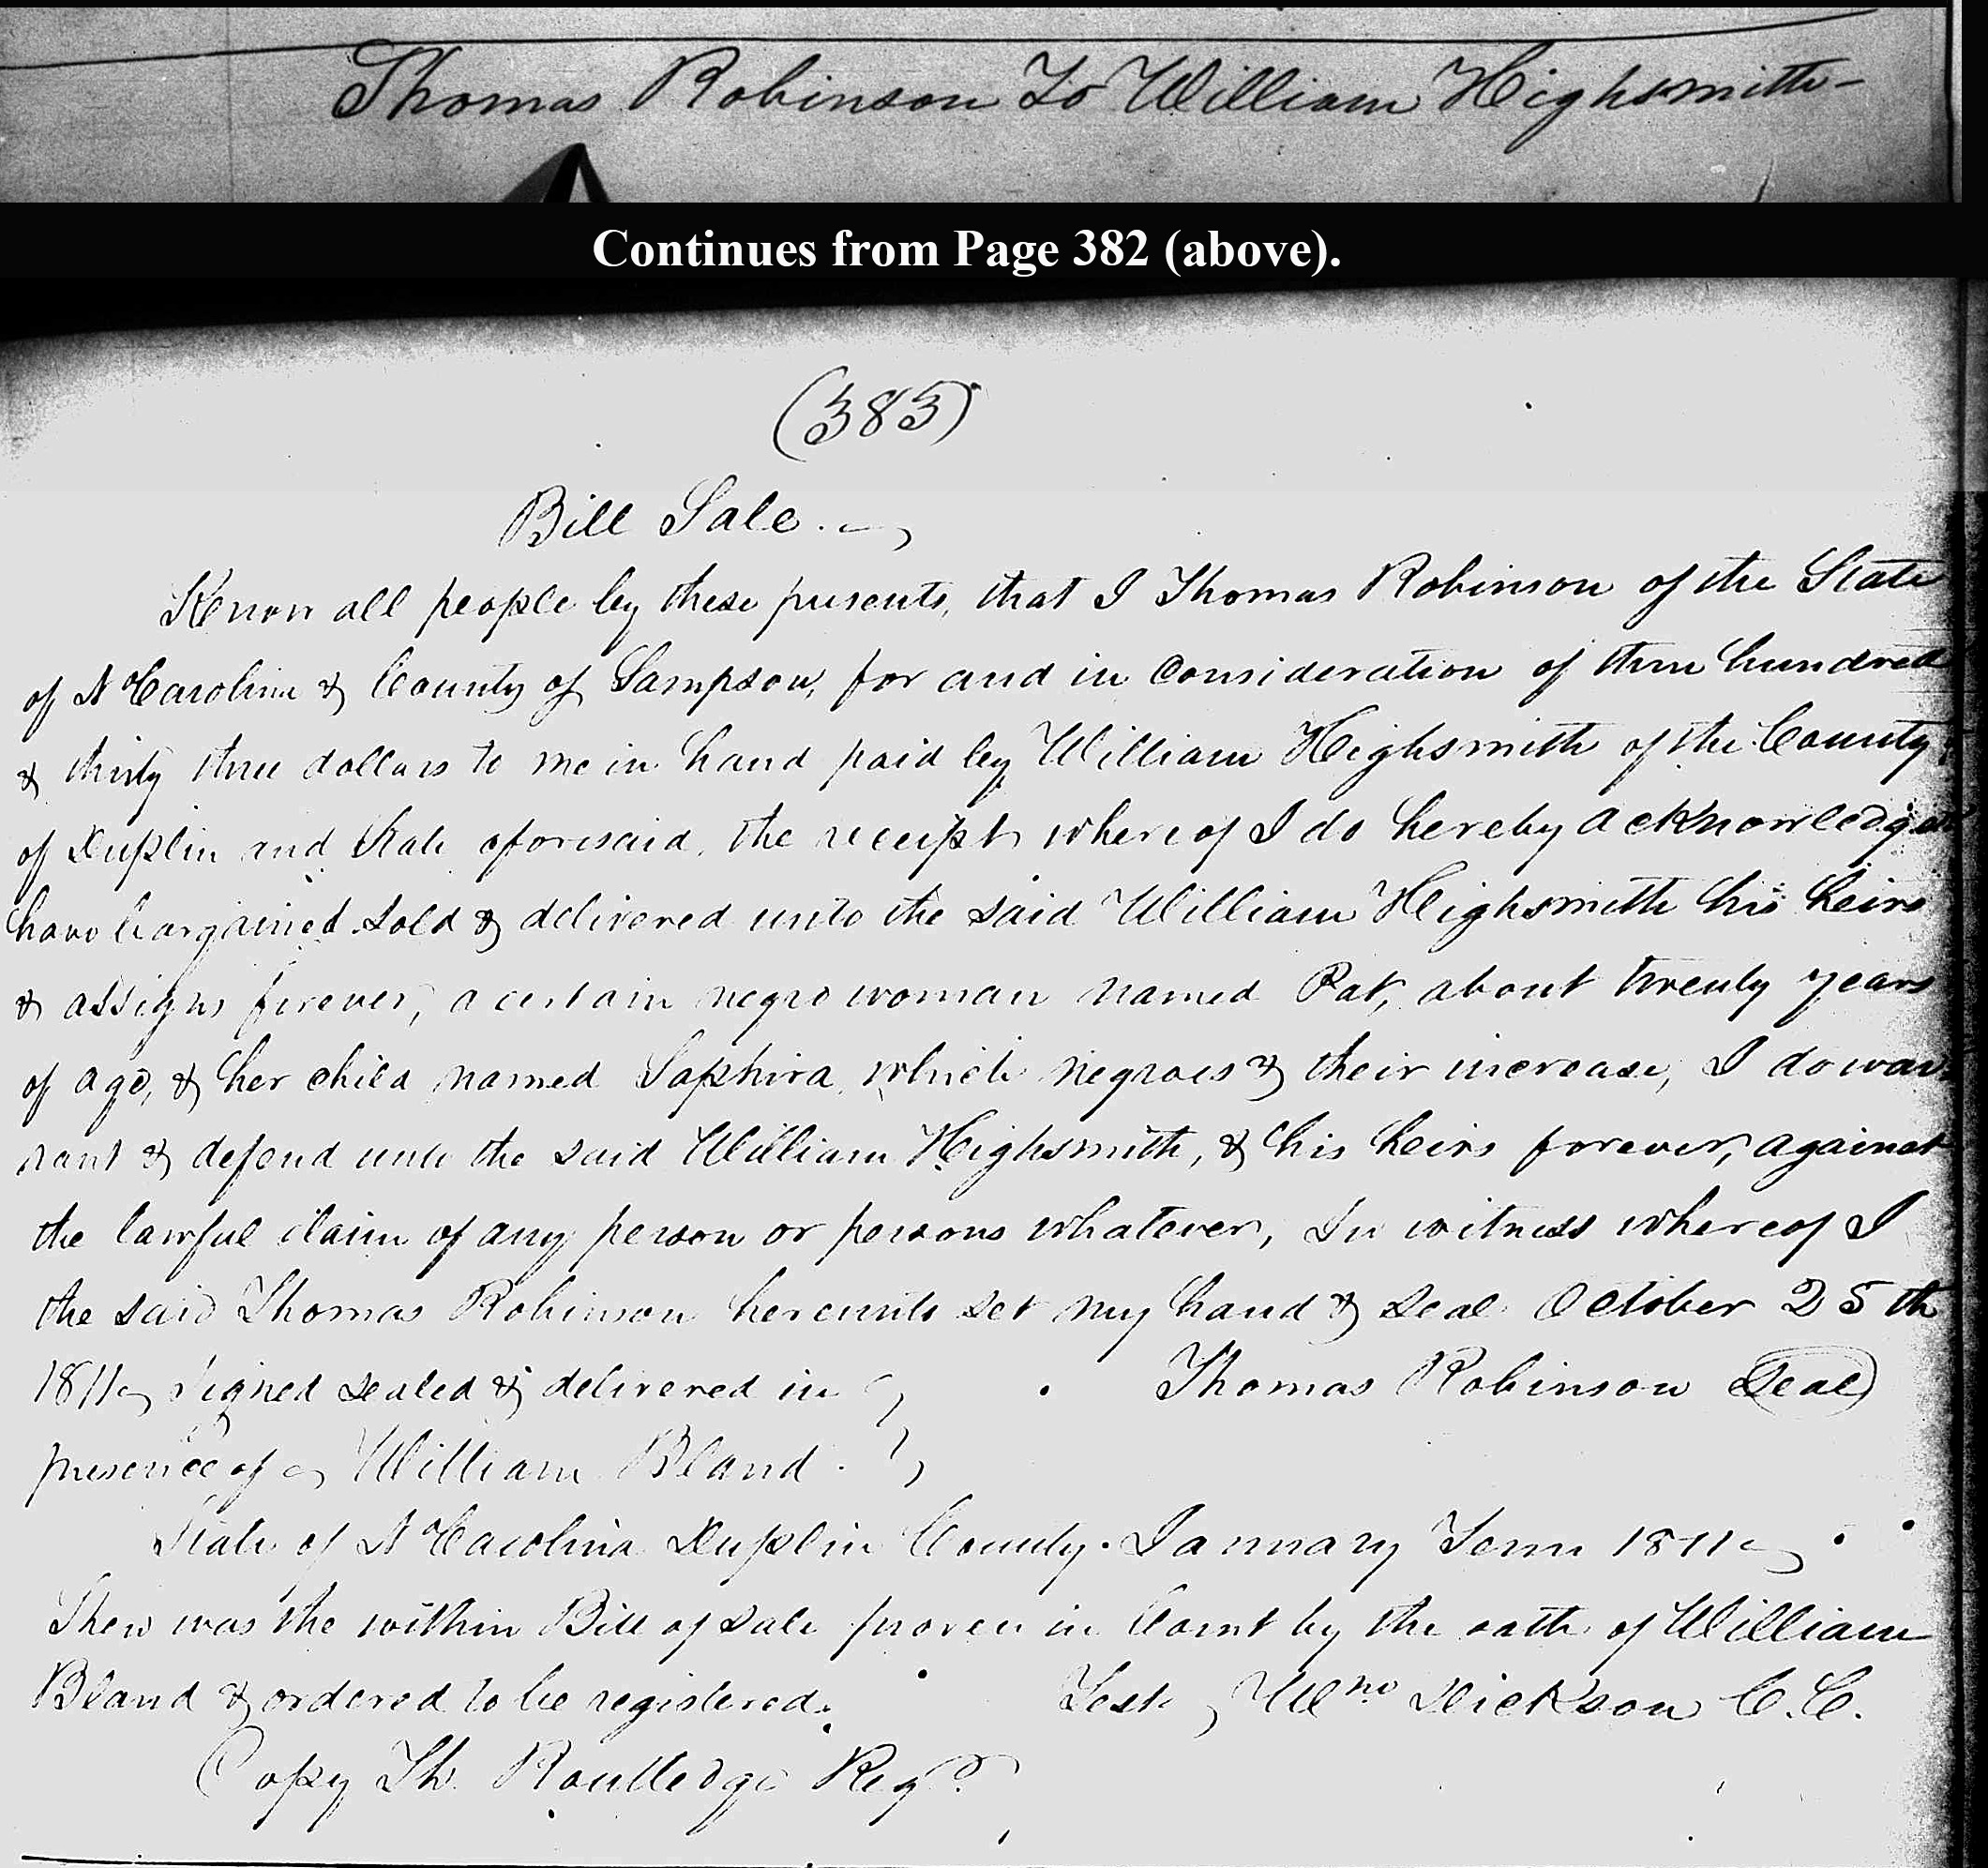 Thomas Robinson To William Highsmith-
Continues from Page 382 (above).
(383)
Bill Sale.
Know all people by these presents, that I Thomas Robinson of the State
of N Carolina & County of Sampson, for and in Consideration of three hundred
& thirty three dollars to me in hand paid by William Highsmith of the County
of Duplin and State aforesaid, the receipt whereof I do hereby acknowledge
have bargained sold & delivered unto the said William Highsmith his heirs
& assigns forever, a certain negro woman named Pat, about twenty years
of age, & her child named Saphira, which negroes & their increase, I do war-
rant & defend unto the said William Highsmith, & his heirs forever, against
the lawful claim of any person or persons whatever, In witness whereof I
the said Thomas Robinson hereunto set my hand & seal October 25th
1811 Signed sealed & delivered in Thomas Robinson Seal
presence of William Bland.
State of N Carolina Duplin County. January Term 1811
Then was the within Bill of Sale proven in Court by the oath of William
Bland & ordered to be registered. Test, Wm Dickson C.C.
Copy Th. Routledge Regr.